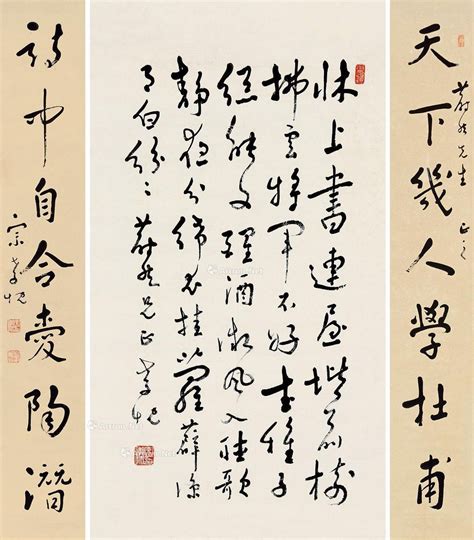 天下幾人學杜甫
蔚然先生正之
床上書連屋階前樹
拂雲將軍不好武稚子
總能文醒酒微風入聽歌
靜夜分絺衣挂蘿薜涼
月白紛〻蔚然兄正孝忱
詩中自合愛陶潛
宗孝忱